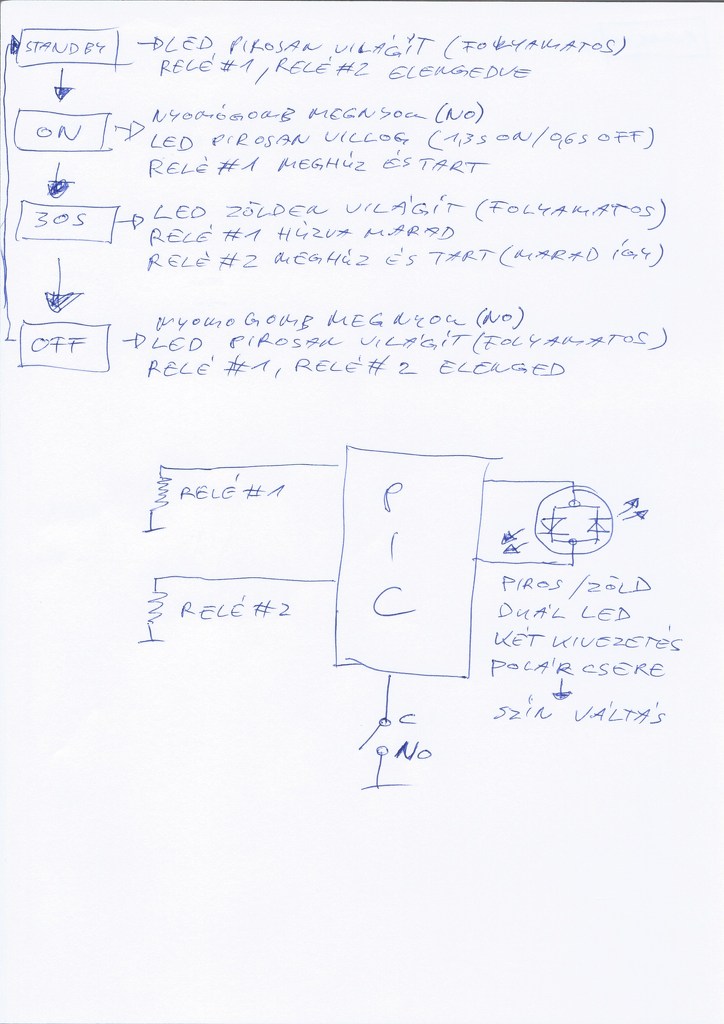 STANDBY → LED PIROSAN VILÁGÍT (FOLYAMATOS)
RELÉ #1, RELÉ #2 ELENGEDVE
NYOMÓGOMB MEGNYOM (NO)
ON → LED PIROSAN VILLOG (1,3S ON/0,6S OFF)
RELÉ #1 MEGHÚZ ÉS TART
30S → LED ZÖLDEN VILÁGÍT (FOLYAMATOS)
RELÉ #1 HÚZVA MARAD
RELÉ #2 MEGHÚZ ÉS TART (MARAD ÍGY)
NYOMOGOMB MEGNYOM (NO)
OFF → LED PIROSAN VILÁGÍT (FOLYAMATOS)
RELÉ #1, RELÉ #2 ELENGED
RELÉ #1
RELÉ #2
P
I
C
PIROS / ZÖLD
DUÁL LED
KÉT KIVEZETÉS
POLÁR CSERE
SZÍN VÁLTÁS
C
NO